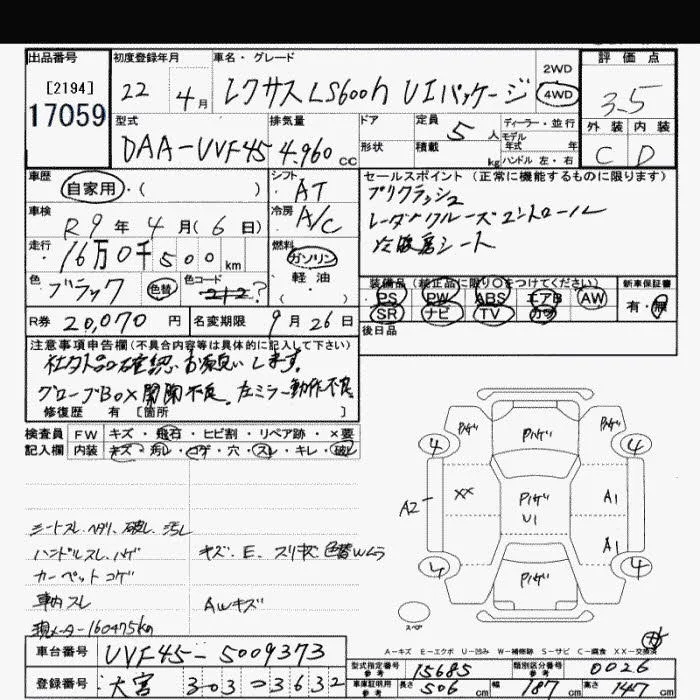 出品番号 初度登録年月 車名・グレード 2WD 評価点
[2194] 22年 4月 レクサスLS600h UIパッケージ 4WD 3.5
17059 外装 内装
型式 排気量 ドア 定員 5人 ディーラー・並行
モデル年式 年
DAA-UVF45 4.960cc 形状 積載 kg ハンドル 左・右 C D
車歴 シフト セールスポイント (正常に機能するものに限ります)
自家用・( ) AT プリクラッシュ
車検 冷房 レーダークルーズコントロール
R9年 4月(6日) A/C 冷暖房シート
走行 16万0千500km 燃料 ガソリン
軽油
( )
色 ブラック 色替 色コード 212? 装備品(純正品に限り○をつけてください) 新車保証書
PS PW ABS エアB AW 有・無
SR ナビ TV カワ
R券 20,070円 名変期限 9月26日 後日品
注意事項申告欄(不具合内容等は具体的に記入して下さい)
社外品の確認、お願いします。
グローブBOX開閉不良、左ミラー動作不良
修復歴 有 [箇所 ]
検査員 FW キズ・飛石・ヒビ割・リペア跡・×要
記入欄 内装 キズ・汚レ・コゲ・穴・スレ・キレ・破レ
Pハゲ Pハゲ Pハゲ
4 4
A2 XX Pハゲ A1
U1
A1
4 Pハゲ 4
シートスレ、ヘタリ、破レ、汚レ
ハンドルスレ、ハゲ キズ、E、スリキズ 色替Wムラ
カーペットコゲ
車内スレ AWキズ
現メーター160475km
スペア
A-キズ E-エクボ U-凹み W-補修跡 S-サビ C-腐食 XX-交換済
車台番号 UVF45-5009373
型式指定番号 参考 15685 類別区分番号 参考 0026
登録番号 大宮 303 ス 3632
車庫証明用 参考 長さ 506cm 幅 187cm 高さ 147cm